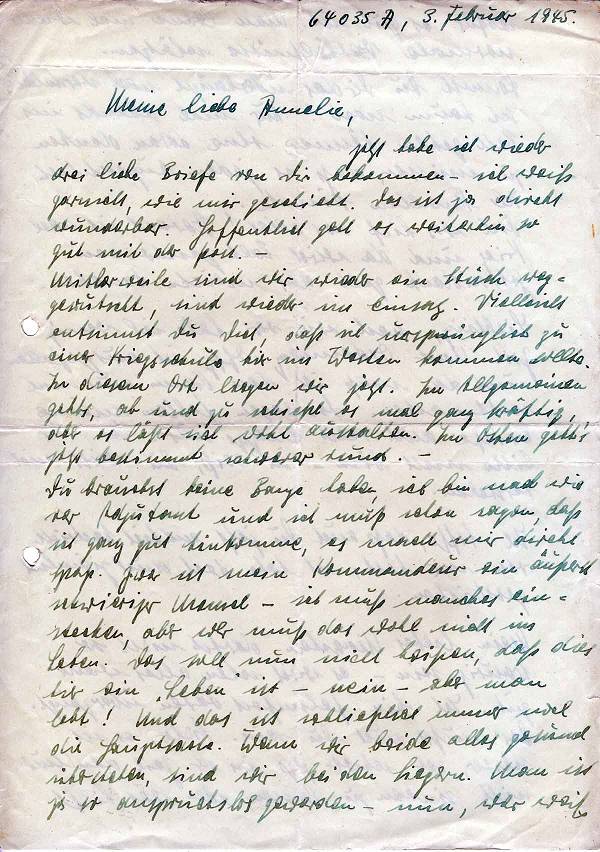 64035 A, 3. Februar 1945.
Meine liebe Annelie,
jetzt habe ich wieder
drei liebe Briefe von Dir bekommen – ich weiß
garnicht, wie mir geschieht. Das ist ja direkt
wunderbar. Hoffentlich geht es weiterhin so
gut mit der Post. –
Mittlerweile sind wir wieder ein Stück weg-
gerutscht, sind wieder im Einsatz. Vielleicht
entsinnst Du Dich, daß ich ursprünglich zu
einer Kriegsschule hier im Westen kommen sollte.
In diesem Ort liegen wir jetzt. Im Allgemeinen
gehts, ab und zu schießt es mal ganz kräftig,
aber es läßt sich wohl aushalten. Im Osten geht's
jetzt bestimmt schwerer rund. –
Du brauchst keine Bange haben, ich bin nach wie
vor Adjutant und ich muß schon sagen, daß
ich ganz gut hinkomme, es macht mir direkt
Spaß. Zwar ist mein Kommandeur ein äußerst
schwieriger Mensch – ich muß manches ein-
stecken, aber wer muß das wohl nicht im
Leben. Das soll nun nicht heißen, daß dies
hier ein "Leben" ist – nein – aber man
lebt! Und das ist schließlich immer noch
die Hauptsache. Wenn wir beide alles gesund
überstehen, sind wir bei den Siegern. Man ist
ja so anspruchslos geworden – nun, wer weiß